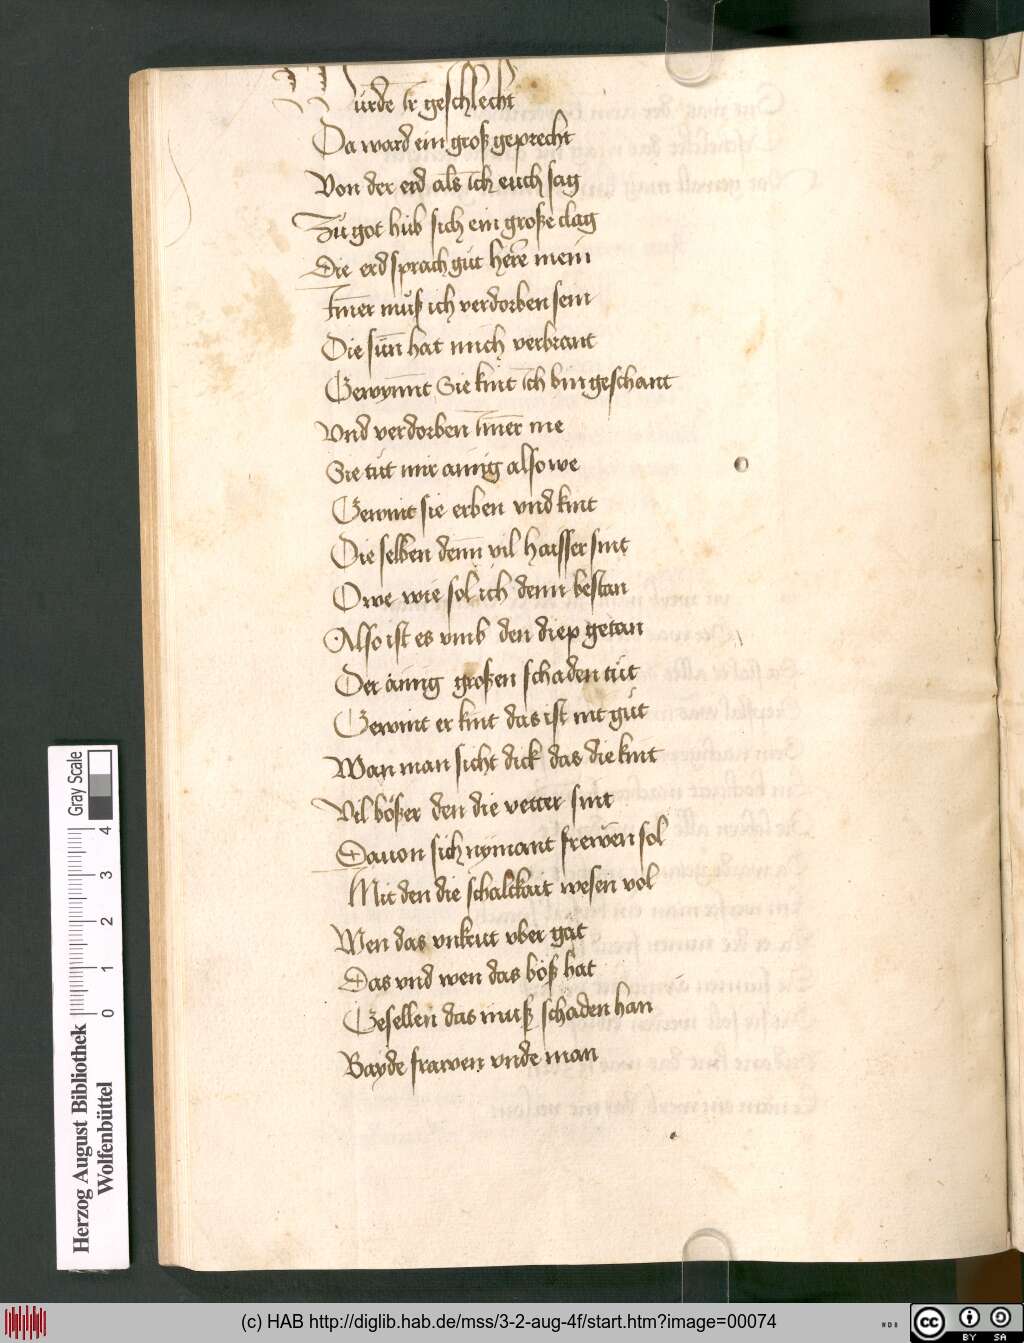 Würde Ir geschlecht
Da ward ein groß geprecht
Von der erd als Ich euch sag
Zu got hub sich ein große clag
Die erd sprach gut here mein
Imer muß ich verdorben sein
Die sun hat mich verbrant
Gewynnt Sie kint Ich bin geschant
Vnd verdorben Imer me
Sie tut mir ainig also we
Gewint sie erben vnd kint
Die selben denn vil haisser sint
Owe wie sol ich denn bestan
Also ist es vmb den diep getan
Der ainig großen schaden tůt
Gewint er kint das ist nit gut
Wan man sicht dick das die kint
Vil bößer den die vetter sint
Dauon sich nymant frewen sol
Mit den die schalckait wesen vol
Wen das vnkrut vber gat
Das vnd wen das böß hat
Gesellen das muß schaden han
Bayde frawen vnde man
Herzog August Bibliothek
Wolfenbüttel
0 1 2 3 4
Gray Scale
(c) HAB http://diglib.hab.de/mss/3-2-aug-4f/start.htm?image=00074
WDB
cc BY SA